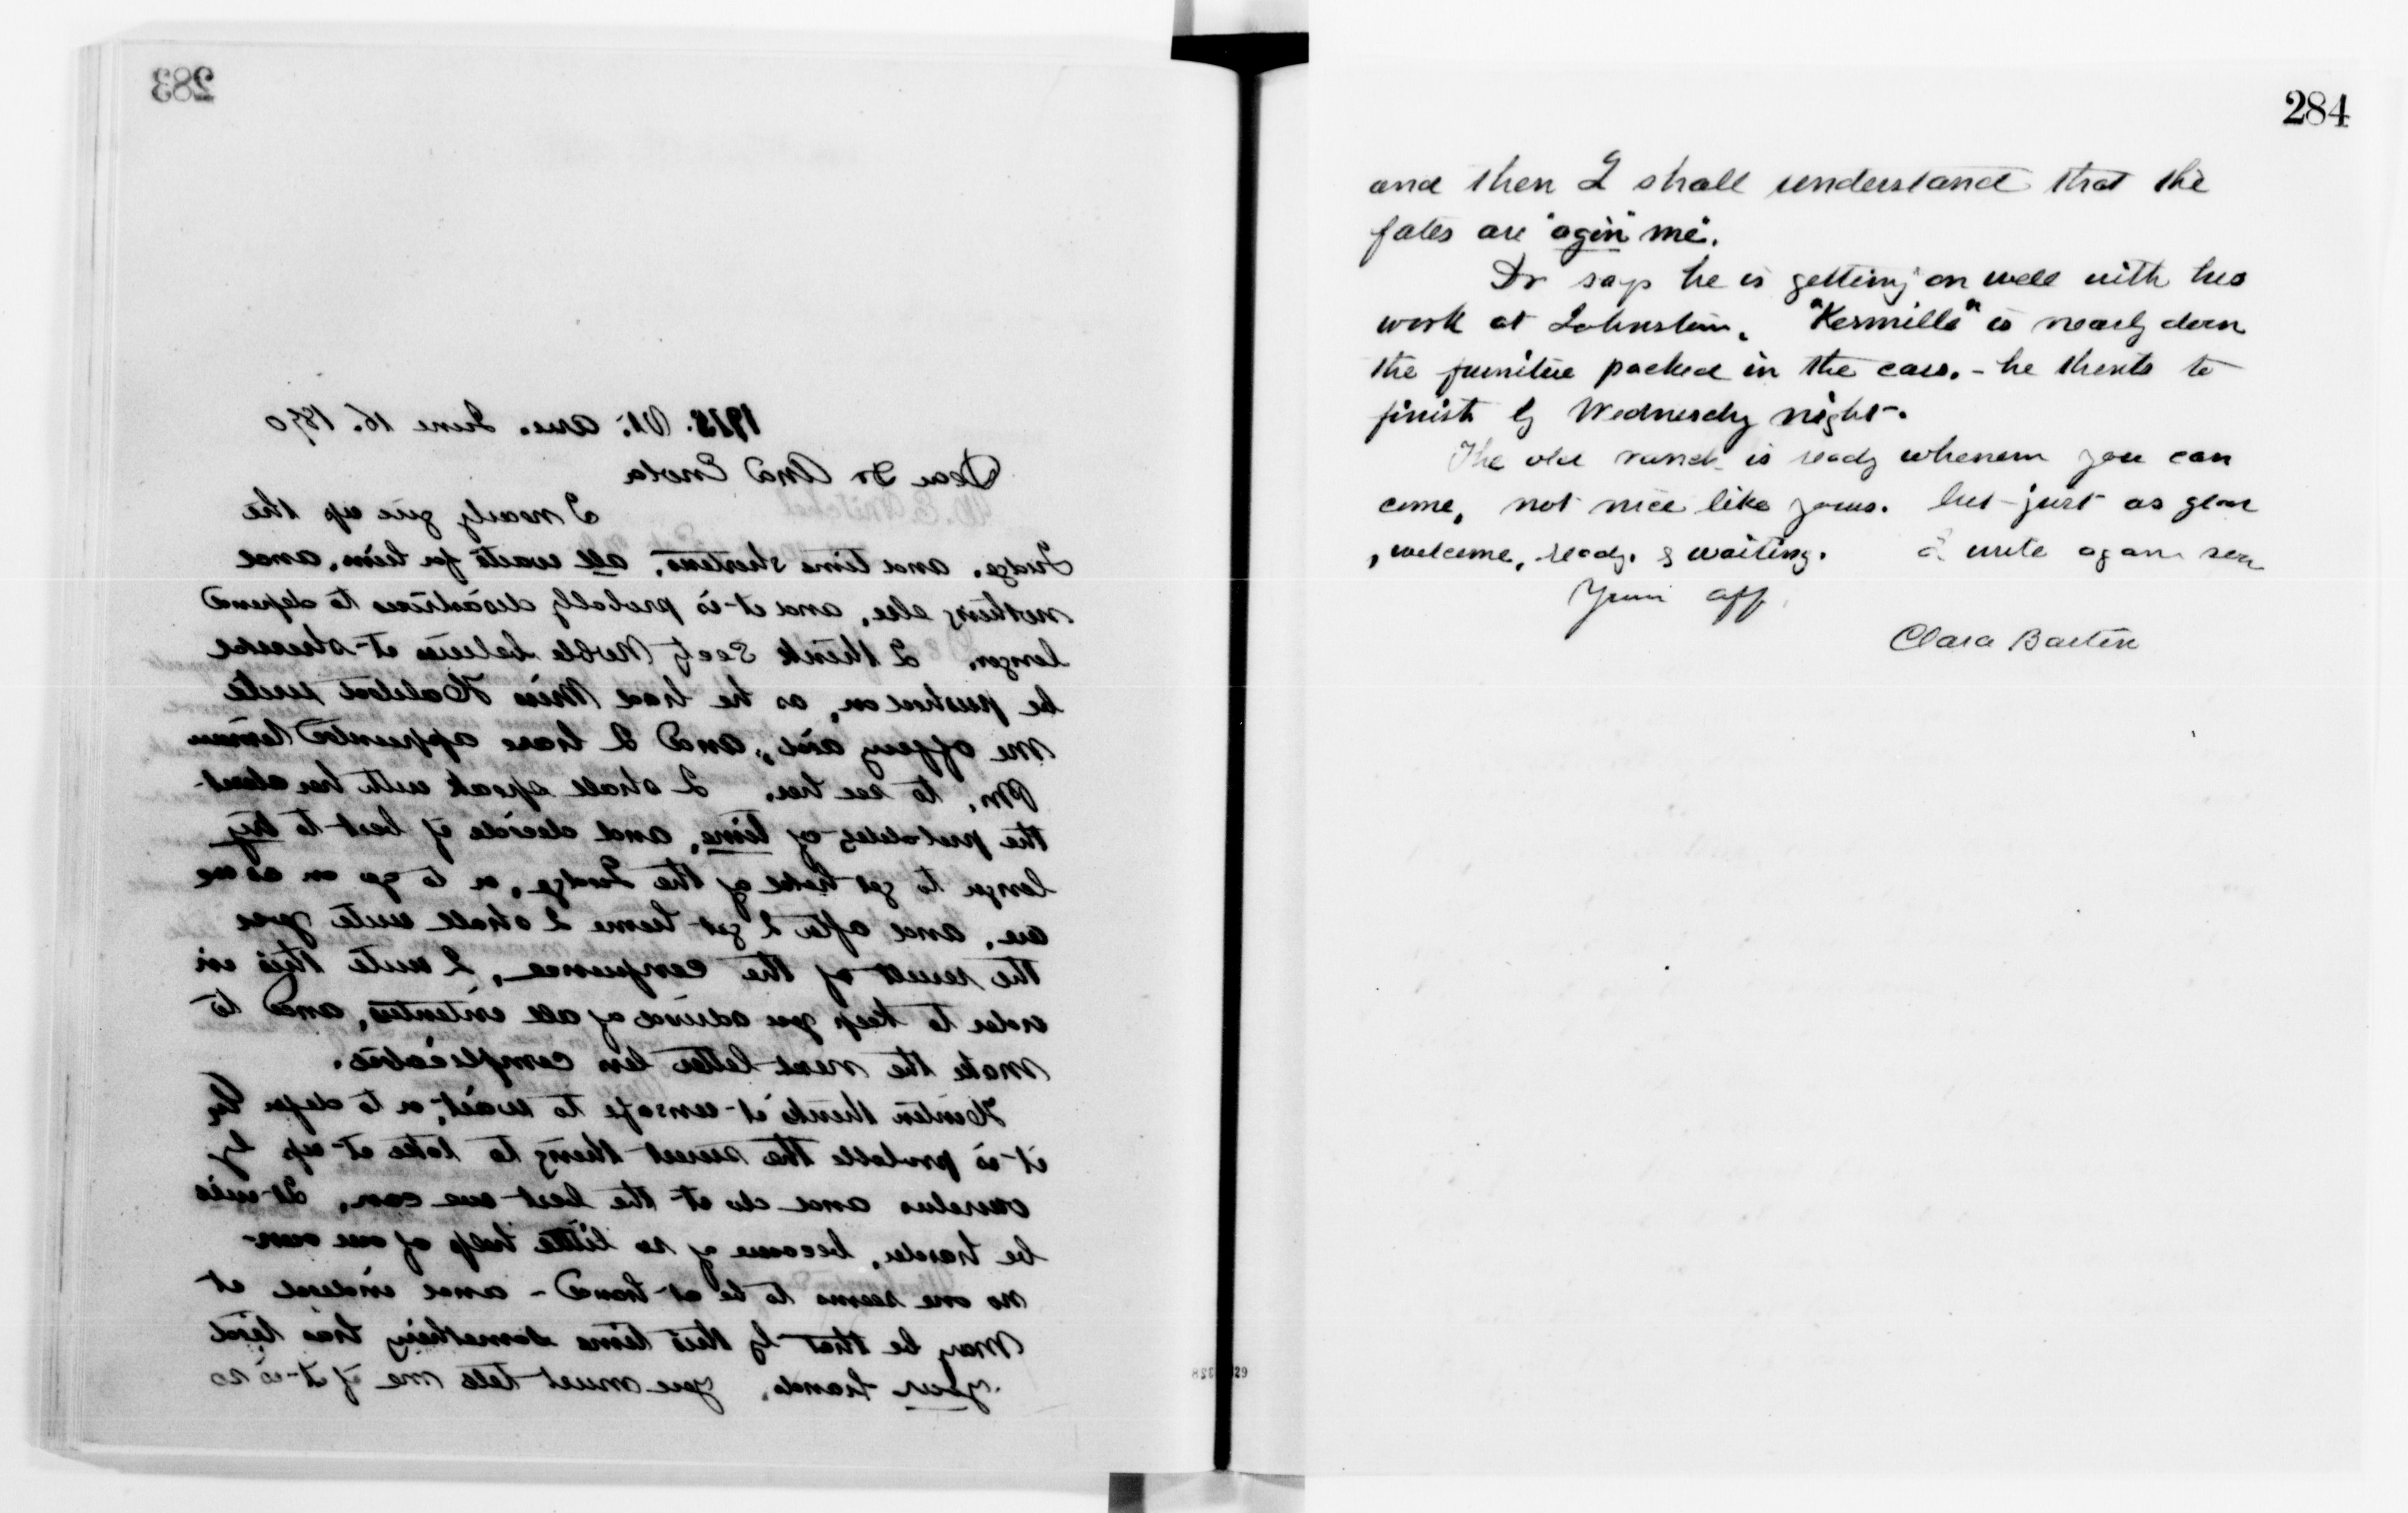 283
1915. Vt. ave. June 16. 1890
Dear Dr And Enola
I nearly give up the
Judge. and time shortens, all waits for him, and
nothing else, and it is probably disastrous to depend
longer. I think Secty Noble believes it should
be pushed on, as he had Miss Halsted write
me offering aid, and I have appointed
PM. to see her. I shall speak with her about
the of time, and decide if best to try
longer to get hold of the Judge, or to go on as we
are, and after I get home I shall write you
the result of the conference, I write this in
order to keep you advised of all intentions, and to
make the next letter less complicated.
thinks it unsafe to wait, or to defer
it is probable the surest thing to take it up by
ourselves and do it the best we can. It will
be harder, because of so little help of our own
no one seems to be at hand - and indeed it
may be that by this time something has tied
your hands. you must tell me if it is so
284
and then I shall understand that the
fates are "agin" me".
Dr says he is getting on well with his
work at Johnstown. is nearly down
the furniture packed in the cars. - he thinks to
finish by Wednesday night.
The old ranch is ready whenever you can
come, not nice like yours. but just as glad
, welcome, ready. & waiting. write again soon
Yours aff
Clara Barton
328 329